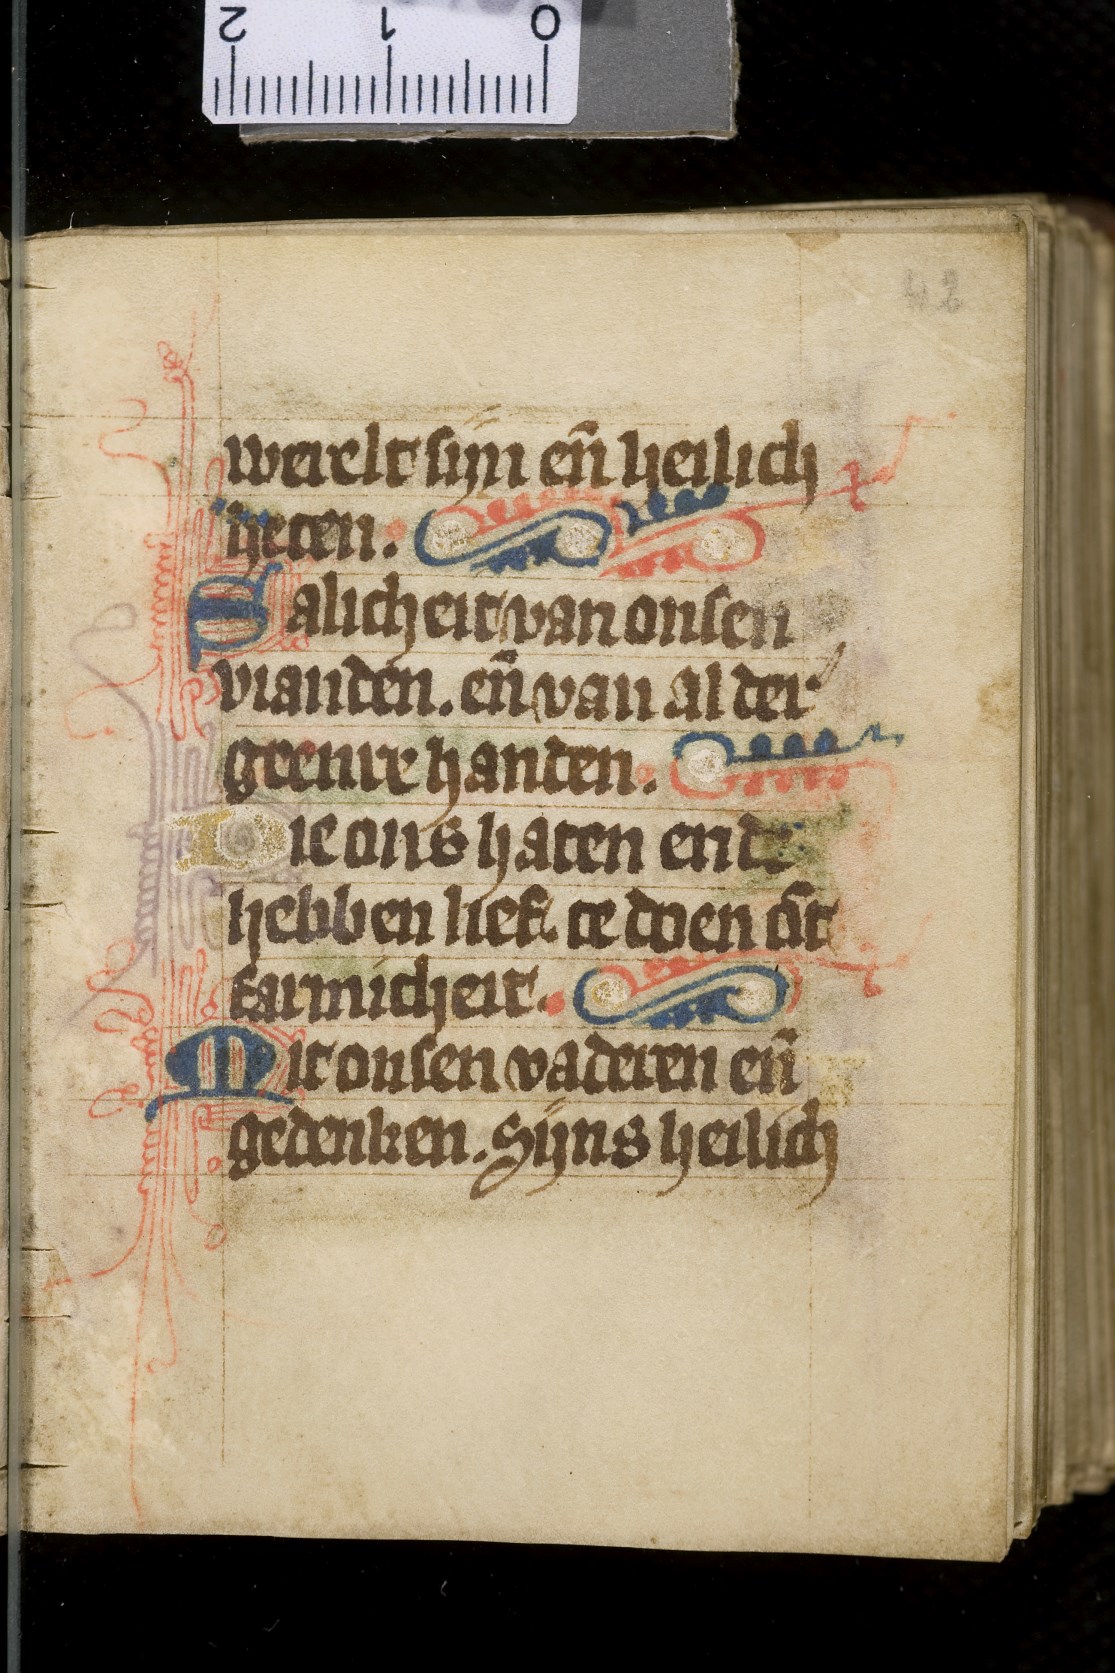 2 1 0
42
werelt sijn eñ heilich
heten.
Salicheit van onsen
vianden. eñ van al der
geenre handen.
Die ons haten ende
hebben lief. te doen ōt
farmicheit.
Mit onsen vaderen eñ
gedenken. Sijns heilich